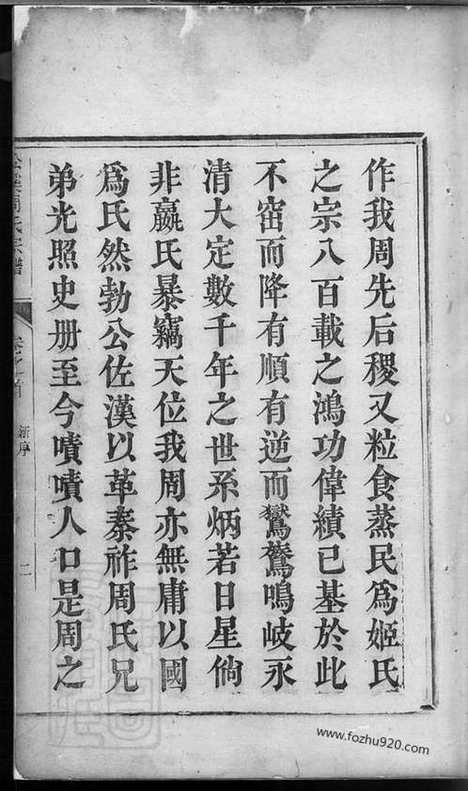 作我周先后稷又粒食蒸民為姬氏
之宗八百載之鴻功偉績已基於此
不窋而降有順有逆而鸑鷟鳴岐永
清大定數千年之世系炳若日星倘
非嬴氏暴竊天位我周亦無庸以國
為氏然勃公佐漢以革秦祚周氏兄
弟光照史册至今嘖嘖人口是周之
周氏宗譜
卷之首
新序
二
www.fozhu920.com